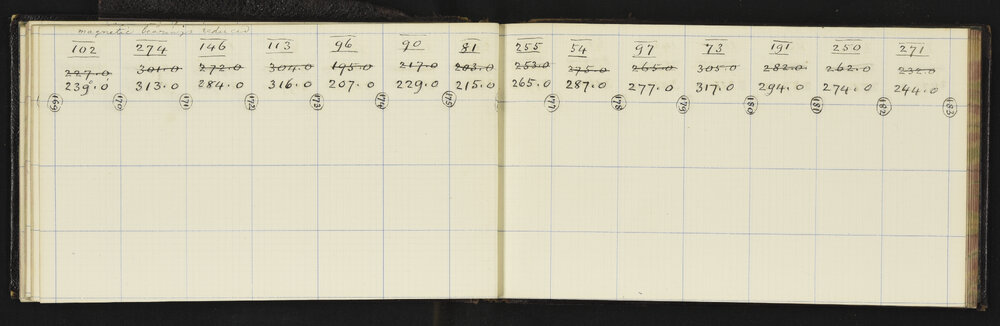 magnetic bearings reduced
102 274 146 113 96 90 81 255 54 97 73 191 250 271
227.0 301.0 272.0 304.0 195.0 217.0 203.0 253.0 305.0 282.0 262.0 232.0
239°.0 313.0 284.0 316.0 207.0 229.0 215.0 265.0 287.0 277.0 317.0 294.0 274.0 244.0
169 170 171 172 173 174 175 177 178 179 180 181 182 183